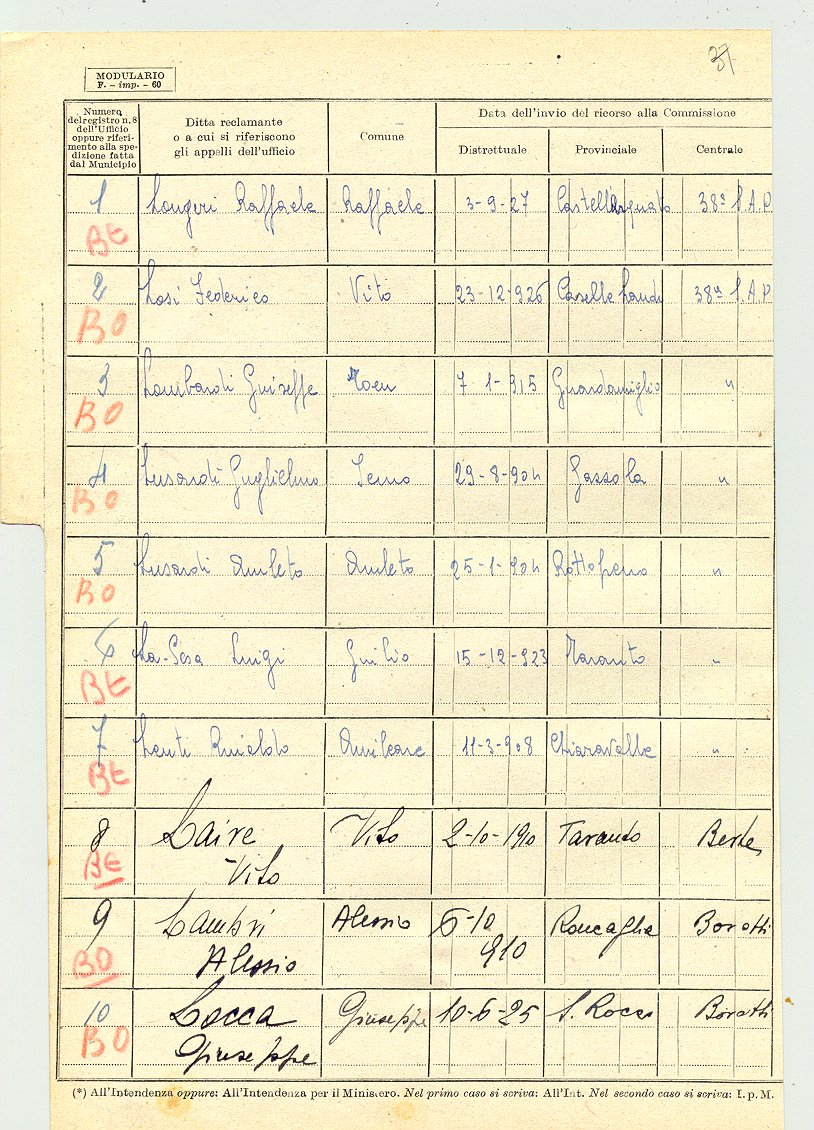 37
MODULARIO
F. - imp. - 60
Numero del registro n. 8 dell'Ufficio oppure riferimento alla spedizione fatta dal Municipio
Ditta reclamante o a cui si riferiscono gli appelli dell'ufficio
Comune
Data dell'invio del ricorso alla Commissione
Distrettuale Provinciale Centrale
1 Longeri Raffaele Raffaele 3-9-27 Castell'Arquato 38ª S.A.P
BE
2 Losi Federico Vito 23-12-926 Caselle Landi 38ª S.A.P
BO
3 Lombardi Guiseffe 7-1-915 Guardamiglio "
BO
4 Lusardi Guglielmo 29-8-904 Gazzola "
BO
5 Lusardi Amleto Amleto 25-1-904 Rottofreno "
BO
6 La-Sesa Luigi Guilio 15-12-923 Taranto "
BE
7 Lenti Amilcare 11-3-908 Chiaravalle "
BE
8 Laire Vito 2-10-910 Taranto
BE Vito
9 Lambri Alessio 6-10 Roncaglia Boretti
BO Alessio 910
10 Locca Giuseppe 10-6-25 S. Rocco Boretti
BO Giuseppe
(*) All'Intendenza oppure: All'Intendenza per il Ministero. Nel primo caso si scriva: All'Int. Nel secondo caso si scriva: I. p. M.